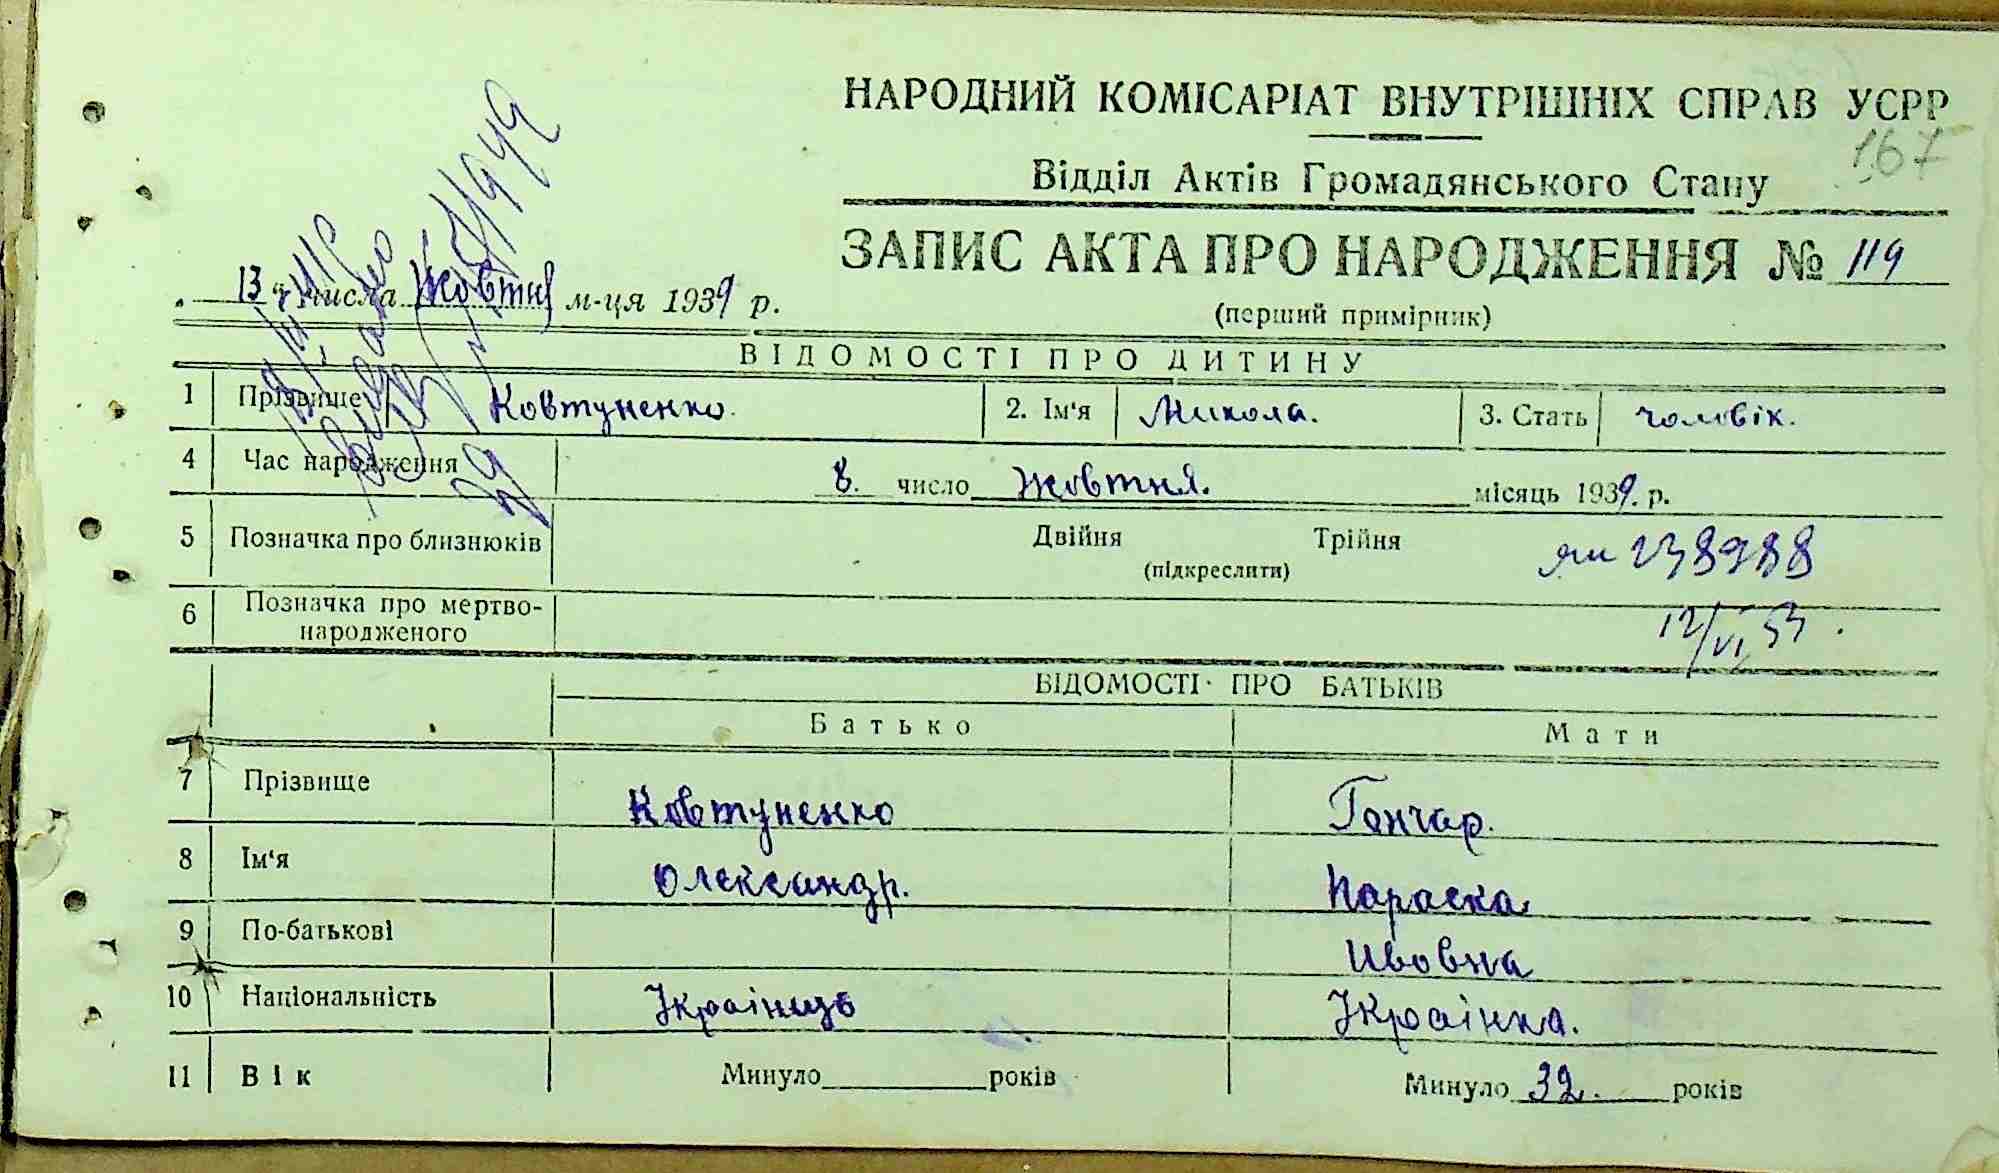 НАРОДНИЙ КОМІСАРІАТ ВНУТРІШНІХ СПРАВ УСРР
167
Відділ Актів Громадянського Стану
ЗАПИС АКТА ПРО НАРОДЖЕННЯ № 119
(перший примірник)
13 числа Жовтня м-ця 1939 р.
ВІДОМОСТІ ПРО ДИТИНУ
1 Прізвище Ковтуненко. 2. Ім'я Микола. 3. Стать чоловік.
4 Час народження 8. число жовтня. місяць 1939. р.
5 Позначка про близнюків Двійня Трійня
(підкреслити)
238988
12/VI 53.
6 Позначка про мертво-
народженого
ВІДОМОСТІ ПРО БАТЬКІВ
Батько Мати
7 Прізвище Ковтуненко Гончар.
8 Ім'я Олександр. Параска
9 По-батькові Ивовна
10 Національність Українець Українка.
11 Вік Минуло років Минуло 32. років